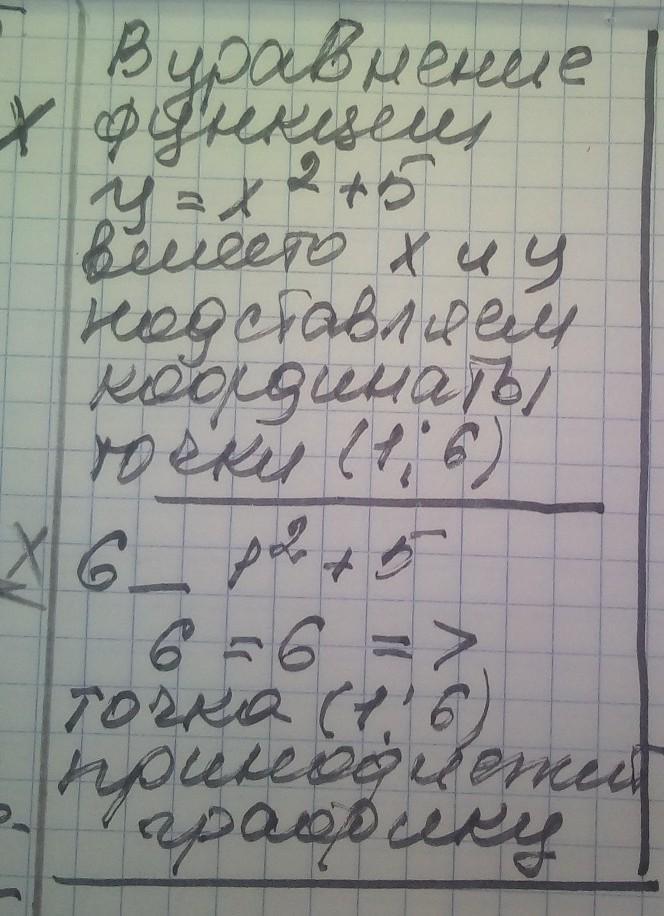 В уравнение
функции
y = x² + 5
вместо x и y
подставляем
координаты
точки (1; 6)
6 _ 1² + 5
6 = 6 =>
точка (1; 6)
принадлежит
графику